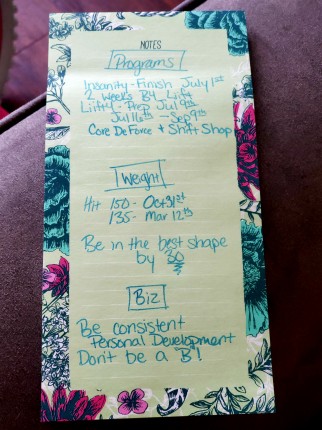 NOTES
Programs
Insanity - Finish July 1st
2 weeks B4 Liift
Liift4 - Prep Jul 9th
Jul 16th - Sep 9th
Core De Force + Shift Shop
Weight
Hit 150 - Oct 31st
135 - Mar 12th
Be in the best shape
by 30
Biz
Be consistent
Personal Development
Don't be a "B"!